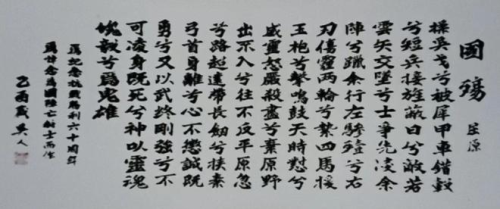 國殤 屈原
操吳戈兮被犀甲車錯轂
兮短兵接旌蔽日兮敵若
雲矢交墜兮士爭先凌余
陣兮躐余行左驂殪兮右
刃傷霾兩輪兮縶四馬援
玉枹兮擊鳴鼓天時懟兮
威靈怒嚴殺盡兮棄原野
出不入兮往不反平原忽
兮路超遠帶長劍兮挾秦
弓首身離兮心不懲誠既
勇兮又以武終剛強兮不
可凌身既死兮神以靈魂
魄毅兮爲鬼雄
爲紀念抗戰勝利六十周年
念爲國陣亡將士而作
乙酉歲吳人